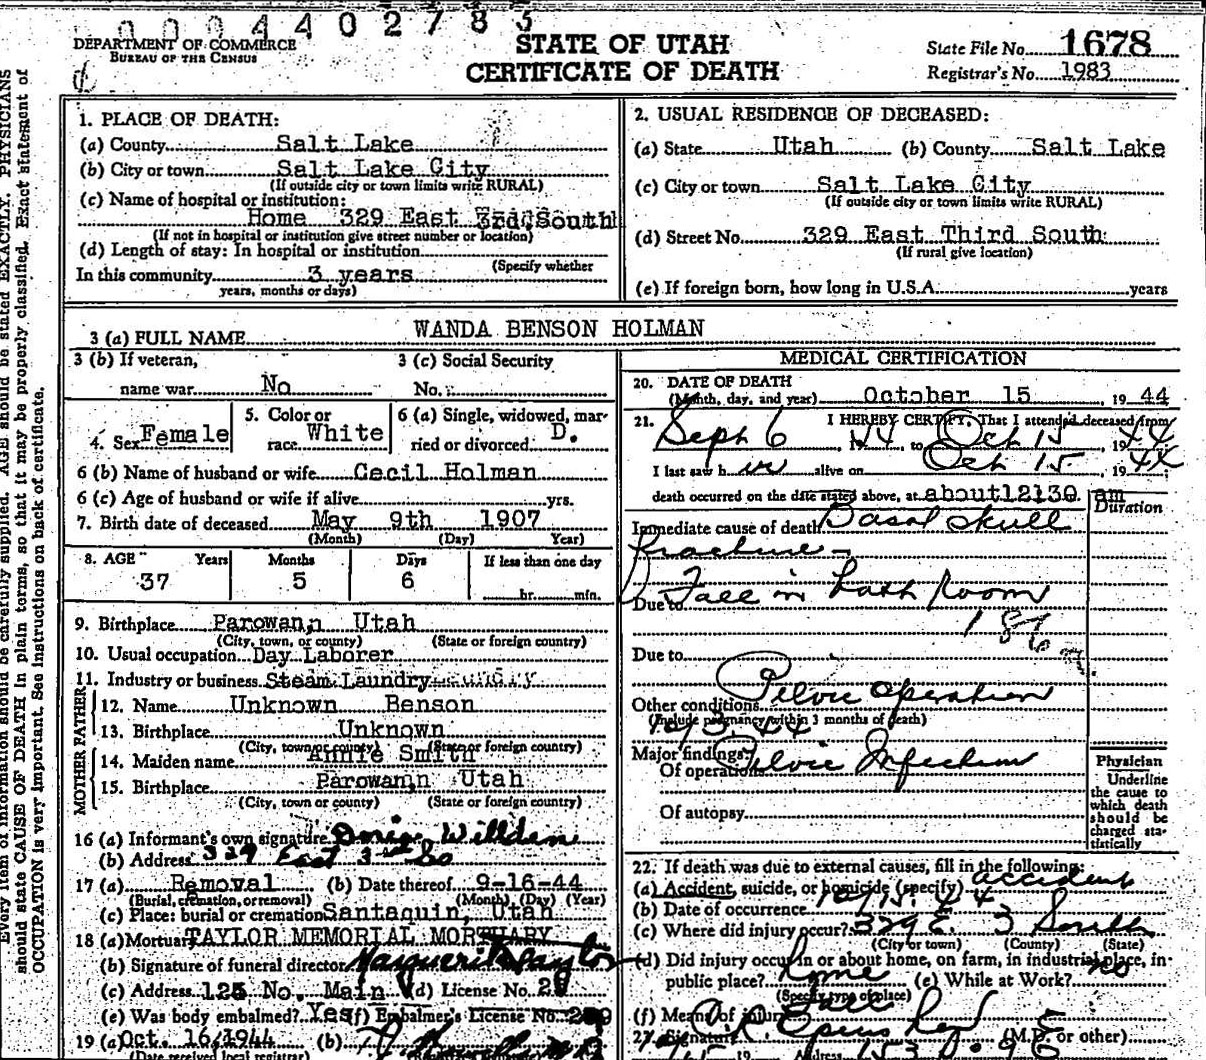 0004402783
DEPARTMENT OF COMMERCE
BUREAU OF THE CENSUS
STATE OF UTAH
CERTIFICATE OF DEATH
State File No. 1678
Registrar's No. 1983
Every item of information should be carefully supplied. AGE should be stated EXACTLY. PHYSICIANS
should state CAUSE OF DEATH in plain terms, so that it may be properly classified. Exact statement of
OCCUPATION is very important. See instructions on back of certificate.
1. PLACE OF DEATH:
(a) County Salt Lake
(b) City or town Salt Lake City
(If outside city or town limits write RURAL)
(c) Name of hospital or institution:
Home 329 East 3rd South
(If not in hospital or institution give street number or location)
(d) Length of stay: In hospital or institution
(Specify whether
In this community 3 years
years, months or days)
2. USUAL RESIDENCE OF DECEASED:
(a) State Utah (b) County Salt Lake
(c) City or town Salt Lake City
(If outside city or town limits write RURAL)
(d) Street No. 329 East Third South
(If rural give location)
(e) If foreign born, how long in U.S.A. years
3 (a) FULL NAME WANDA BENSON HOLMAN
3 (b) If veteran,
name war No
3 (c) Social Security
No.
4. Sex Female
5. Color or
race White
6 (a) Single, widowed, mar-
ried or divorced D.
6 (b) Name of husband or wife Cecil Holman
6 (c) Age of husband or wife if alive yrs.
7. Birth date of deceased May 9th 1907
(Month) (Day) Year)
8. AGE Years Months Days If less than one day
37 5 6 hr. min.
9. Birthplace Parowann Utah
(City, town, or county) (State or foreign country)
10. Usual occupation Day Laborer
11. Industry or business Steam Laundry
FATHER
12. Name Unknown Benson
13. Birthplace Unknown
(City, town or county) (State or foreign country)
MOTHER
14. Maiden name Annie Smith
15. Birthplace Parowann Utah
(City, town or county) (State or foreign country)
16 (a) Informant's own signature Willden
(b) Address 329 East 3rd So
17 (a) Removal (b) Date thereof 9-16-44
(Burial, cremation, or removal) (Month) (Day) (Year)
(c) Place: burial or cremation Santaquin, Utah
18 (a) Mortuary TAYLOR MEMORIAL MORTUARY
(b) Signature of funeral director Marguerite Taylor
(c) Address 125 No. Main (d) License No.
(e) Was body embalmed? Yes (f) Embalmer's License No.
19 (a) Oct. 16, 1944 (b)
(Date received local registrar)
MEDICAL CERTIFICATION
20. DATE OF DEATH
(Month, day, and year) October 15 , 19 44
21. I HEREBY CERTIFY, That I attended deceased from
Sept 6 44 to Oct 15 , 19 44
I last saw h er alive on Oct 15 , 19 44
death occurred on the date stated above, at about 12:30 am
Duration
Immediate cause of death Basal Skull
Fracture
Due to Fall in bath Room
Due to
Other conditions Pelvic operation
(Include pregnancy within 3 months of death)
Major findings:
Of operations Pelvic Infection
Of autopsy
Physician
Underline
the cause to
which death
should be
charged sta-
tistically
22. If death was due to external causes, fill in the following:
(a) Accident, suicide, or homicide (specify) accident
(b) Date of occurrence 10/15. 44
(c) Where did injury occur? 329 E. 3 South
(City or town) (County) (State)
(d) Did injury occur in or about home, on farm, in industrial place, in
public place? home (e) While at Work? no
(Specify type of place)
(f) Means of injury Fall
Signature (M.D. or other)
Address 153